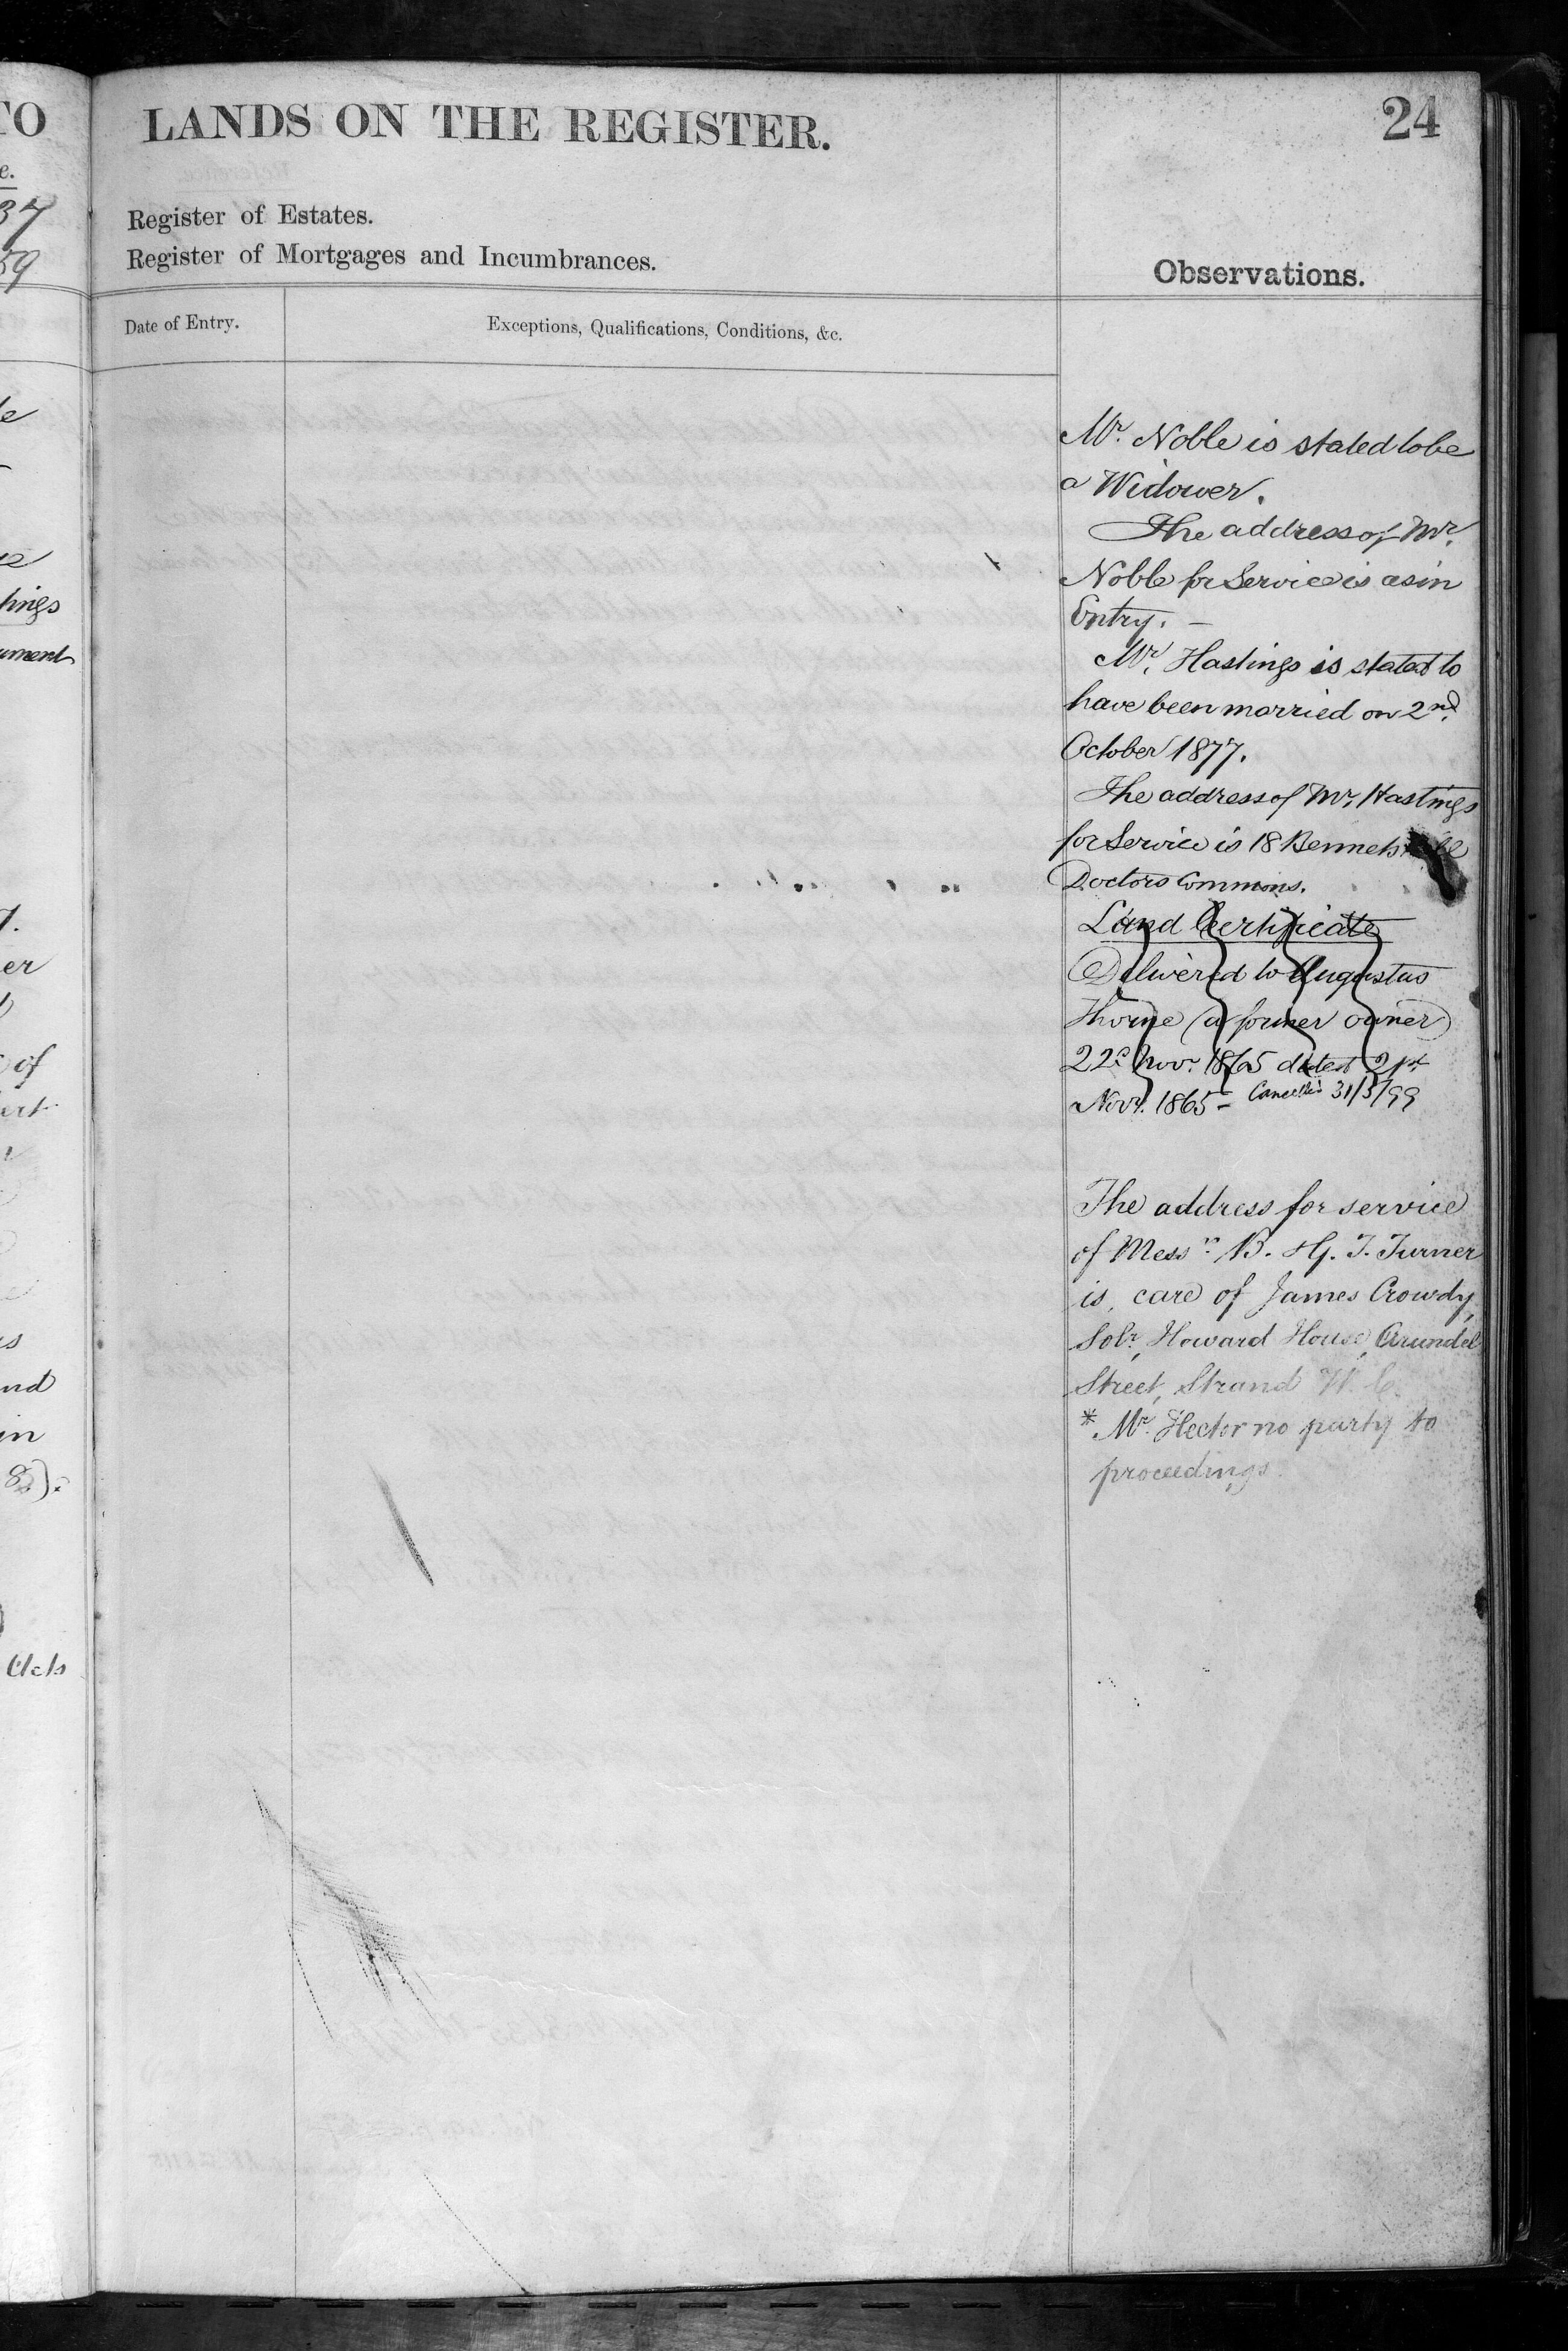 TO
e.
37
59
le
ue
tings
ument
7.
er
of
ert
us
and
in
8).
Acts
LANDS ON THE REGISTER.
24
Register of Estates.
Register of Mortgages and Incumbrances.
Observations.
Date of Entry.
Exceptions, Qualifications, Conditions, &c.
Mr. Noble is stated to be
a Widower.
The address of Mr.
Noble for Service is as in
Entry. –
Mr. Hastings is stated to
have been married on 2nd
October 1877.
The address of Mr. Hastings
for Service is 18 Bennets
Doctors Commons.
Land Certificate
Delivered to Augustus
Thorne (a former owner)
22d Novr. 1865 dated 21st
Novr. 1865 – Cancelled 31/3/99
The address for service
of Messrs B. & G. T. Turner
is, care of James Crowdy,
Solr, Howard House, Arundel
Street, Strand W.C.
* Mr. Hector no party to
proceedings.